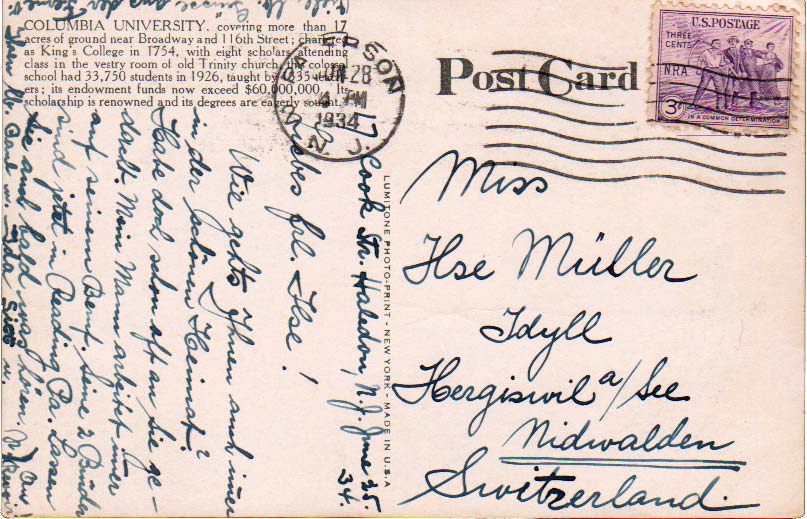 COLUMBIA UNIVERSITY, covering more than 17
acres of ground near Broadway and 116th Street; chartered
as King's College in 1754, with eight scholars attending
class in the vestry room of old Trinity church, the colossal
school had 33,750 students in 1926, taught by
ers; its endowment funds now exceed $60,000,000. Its
scholarship is renowned and its degrees are eagerly sought.
JUN 28
4 PM
1934
N. J.
Post Card
U.S. POSTAGE
THREE
CENTS
N.R.A.
3¢
IN A COMMON DETERMINATION
Miss
Ilse Müller
Idyll
Hergiswil a/See
Nidwalden
Switzerland.
LUMITONE PHOTO-PRINT - NEW YORK - MADE IN U.S.A
17 Cook Str. Haledon, N.J. June 25.
34.
Liebes Frl. Ilse!
Wie gehts Ihnen auch immer
in der schönen Heimat?
Habe doch schon oft an Sie ge-
dacht. Mein Mann arbeitet immer
auf seinem Beruf. Seine 2 Brüder
sind jetzt in Reading Pa. Lassen
Sie auch bald was hören.